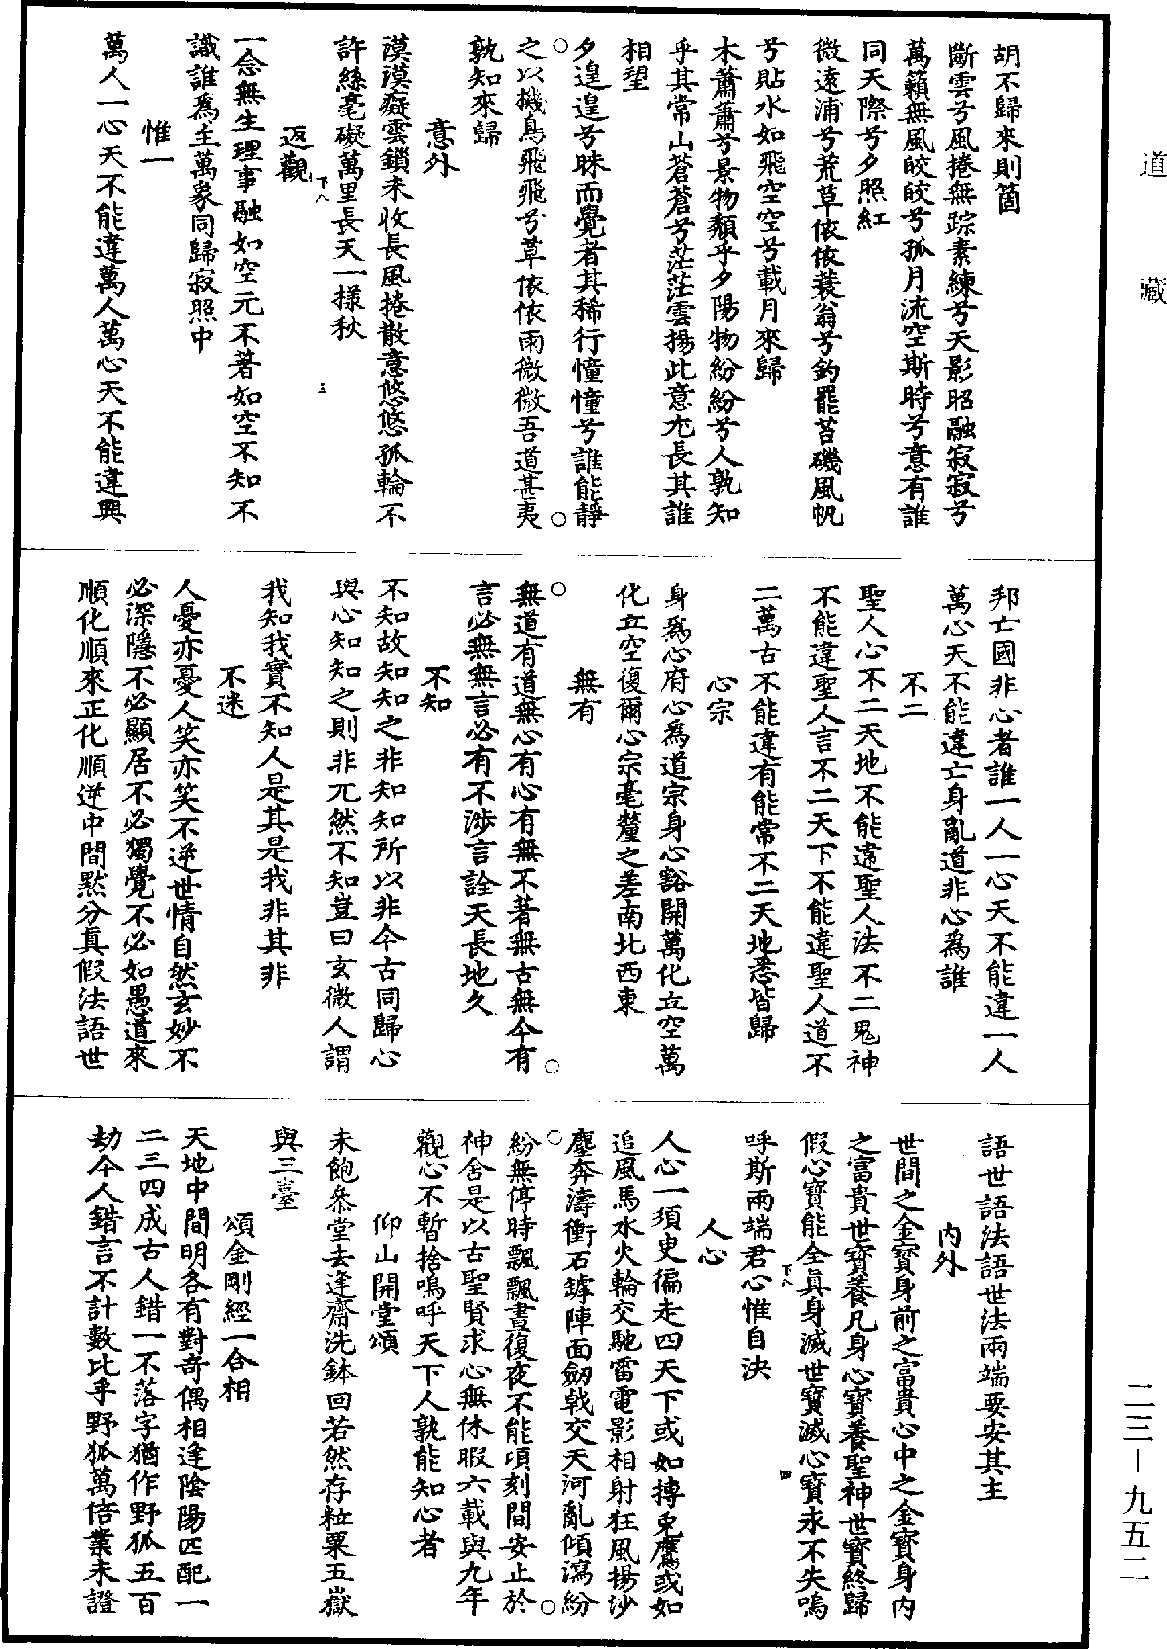 道藏
胡不歸來則箇
斷雲兮風捲無踪素練兮天影昭融寂寂兮
萬籟無風皎皎兮孤月流空斯時兮意有誰
同天際兮夕照紅
微遠浦兮荒草依依蓑翁兮釣罷苔磯風帆
兮貼水如飛空空兮載月來歸
木蕭蕭兮景物頹乎夕陽物紛紛兮人孰知
乎其常山蒼蒼兮茫茫雲揚此意尤長其誰
相望
夕遑遑兮昧而覺者其稀行憧憧兮誰能靜
之以機鳥飛飛兮草依依雨微微吾道甚夷
孰知來歸
意外
漠漠癡雲鎖未收長風捲散意悠悠孤輪不
許絲毫礙萬里長天一樣秋
返觀
一念無生理事融如空元不著如空不知不
識誰為主萬象同歸寂照中
惟一
萬人一心天不能違萬人萬心天不能違興
邦亡國非心者誰一人一心天不能違一人
萬心天不能違亡身亂道非心為誰
不二
聖人心不二天地不能違聖人法不二鬼神
不能違聖人言不二天下不能違聖人道不
二萬古不能違有能常不二天地悉皆歸
心宗
身為心府心為道宗身心豁開萬化立空萬
化立空復爾心宗毫釐之差南北西東
無有
無道有道無心有心有無不著無古無今有
言必無無言必有不涉言詮天長地久
不知
不知故知知之非知知所以非今古同歸心
與心知知之則非兀然不知豈曰玄微人謂
我知我實不知人是其是我非其非
不迷
人憂亦憂人笑亦笑不逆世情自然玄妙不
必深隱不必顯居不必獨覺不必如愚道來
順化順來正化順逆中間黙分真假法語世
語世語法語世法兩端要安其主
內外
世間之金寶身前之富貴心中之金寶身內
之富貴世寶養凡身心寶養聖神世寶終歸
假心寶能全真身滅世寶滅心寶永不失嗚
呼斯兩端君心惟自決
人心
人心一須臾徧走四天下或如摶兔鷹或如
追風馬水火輪交馳雷電影相射狂風揚沙
塵奔濤衝石罅陣面劒戟交天河亂傾瀉紛
紛無停時飄飄晝復夜不能頃刻間安止於
神舍是以古聖賢求心無休暇六載與九年
觀心不暫捨嗚呼天下人孰能知心者
仰山開堂頌
未飽叅堂去逢齋洗鉢回若然存粒粟五嶽
與三臺
頌金剛經一合相
天地中間明各有對奇偶相逢陰陽匹配一
二三四成古人錯一不落字猶作野狐五百
劫今人錯言不計數比乎野狐萬倍業未證
下八
三
下八
四
二三—九五二